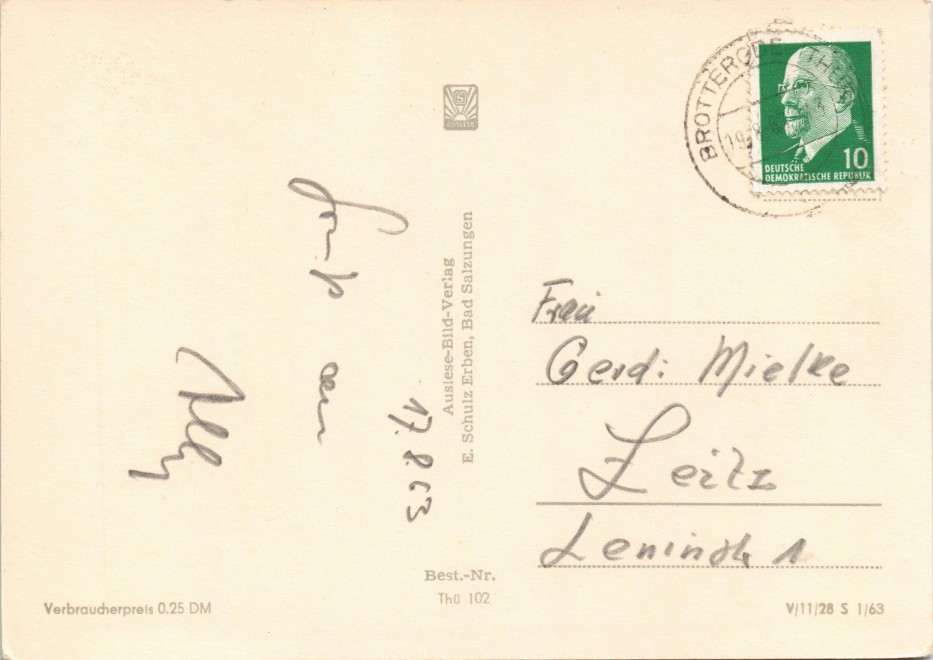 17. 8. 63
Auslese-Bild-Verlag
E. Schulz Erben, Bad Salzungen
Best.-Nr.
Thü 102
Verbraucherpreis 0,25 DM
BROTTERODE
10
DEUTSCHE
DEMOKRATISCHE REPUBLIK
Frau
Gerdi Mielke
Zeitz
Leninstr 1
V/11/28 S 1/63